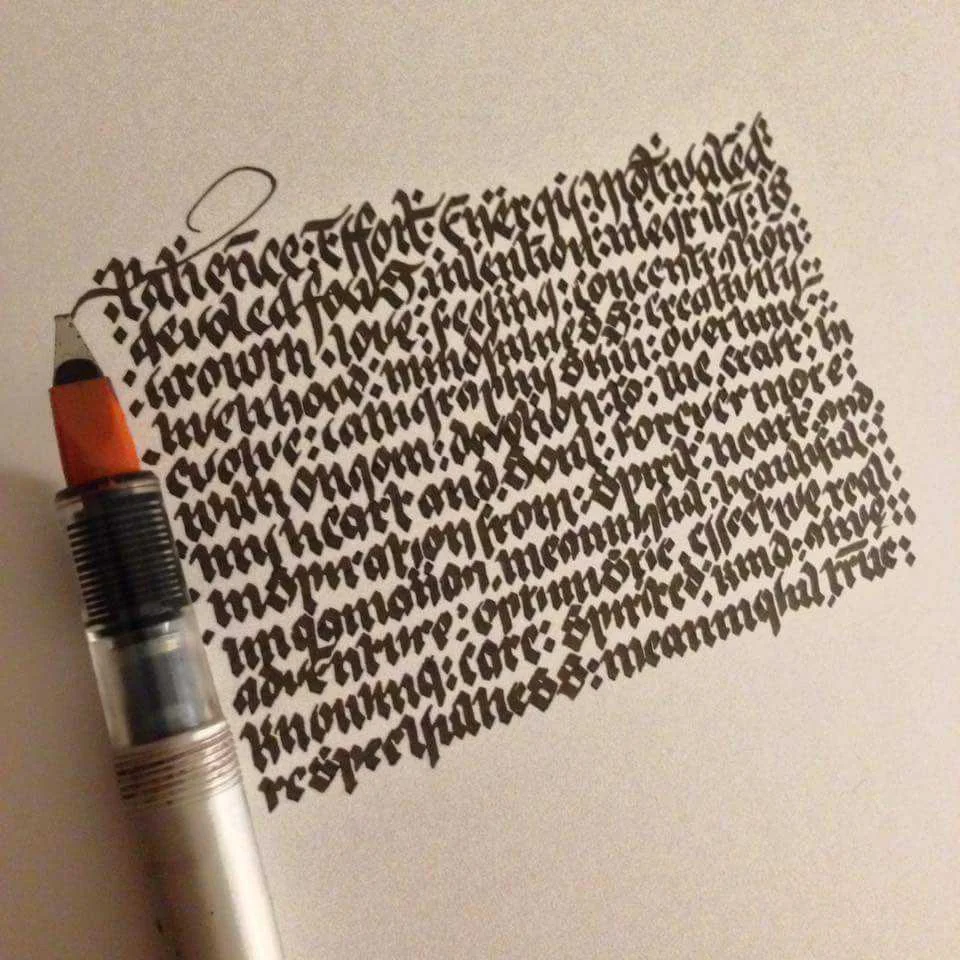 Patience: Effort: Energy: Motivated
devoted focus: intention: integrity: is
Growth: love: feeling: concentration:
livelihood: mindfulness: creativity:
evolve: caligraphy skill: over time:
with ongom: devotion: to: the craft: in
my heart and. Soul: forever more:
inspiration from: Spirit: heart: and
imgomation. meaningful: beautiful:
adventure: optimistic: effective real
Knowing: care: Spirited: kind: alive:
respectfulness: meaningful true: